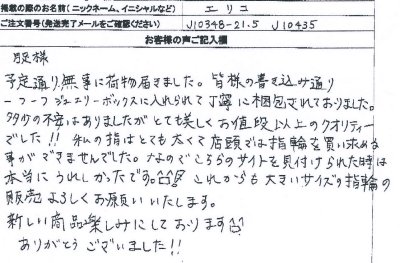 掲載の際のお名前(ニックネーム、イニシャルなど) エリコ
ご注文番号(発送完了メールをご確認ください) J10348-21.5 J10435
お客様の声ご記入欄
店様
予定通り無事に荷物届きました。皆様の書き込み通り
一つ一つジュエリーボックスに入れられて丁寧に梱包されておりました。
多少の不安はありましたがとても美しくお値段以上のクオリティー
でした!! 私の指はとても太くて店頭では指輪を買い求める
事ができませんでした。なのでこちらのサイトを見付けられた時は
本当にうれしかったです。 これからも大きいサイズの指輪の
販売よろしくお願いいたします。
新しい商品楽しみにしております
ありがとうございました!!